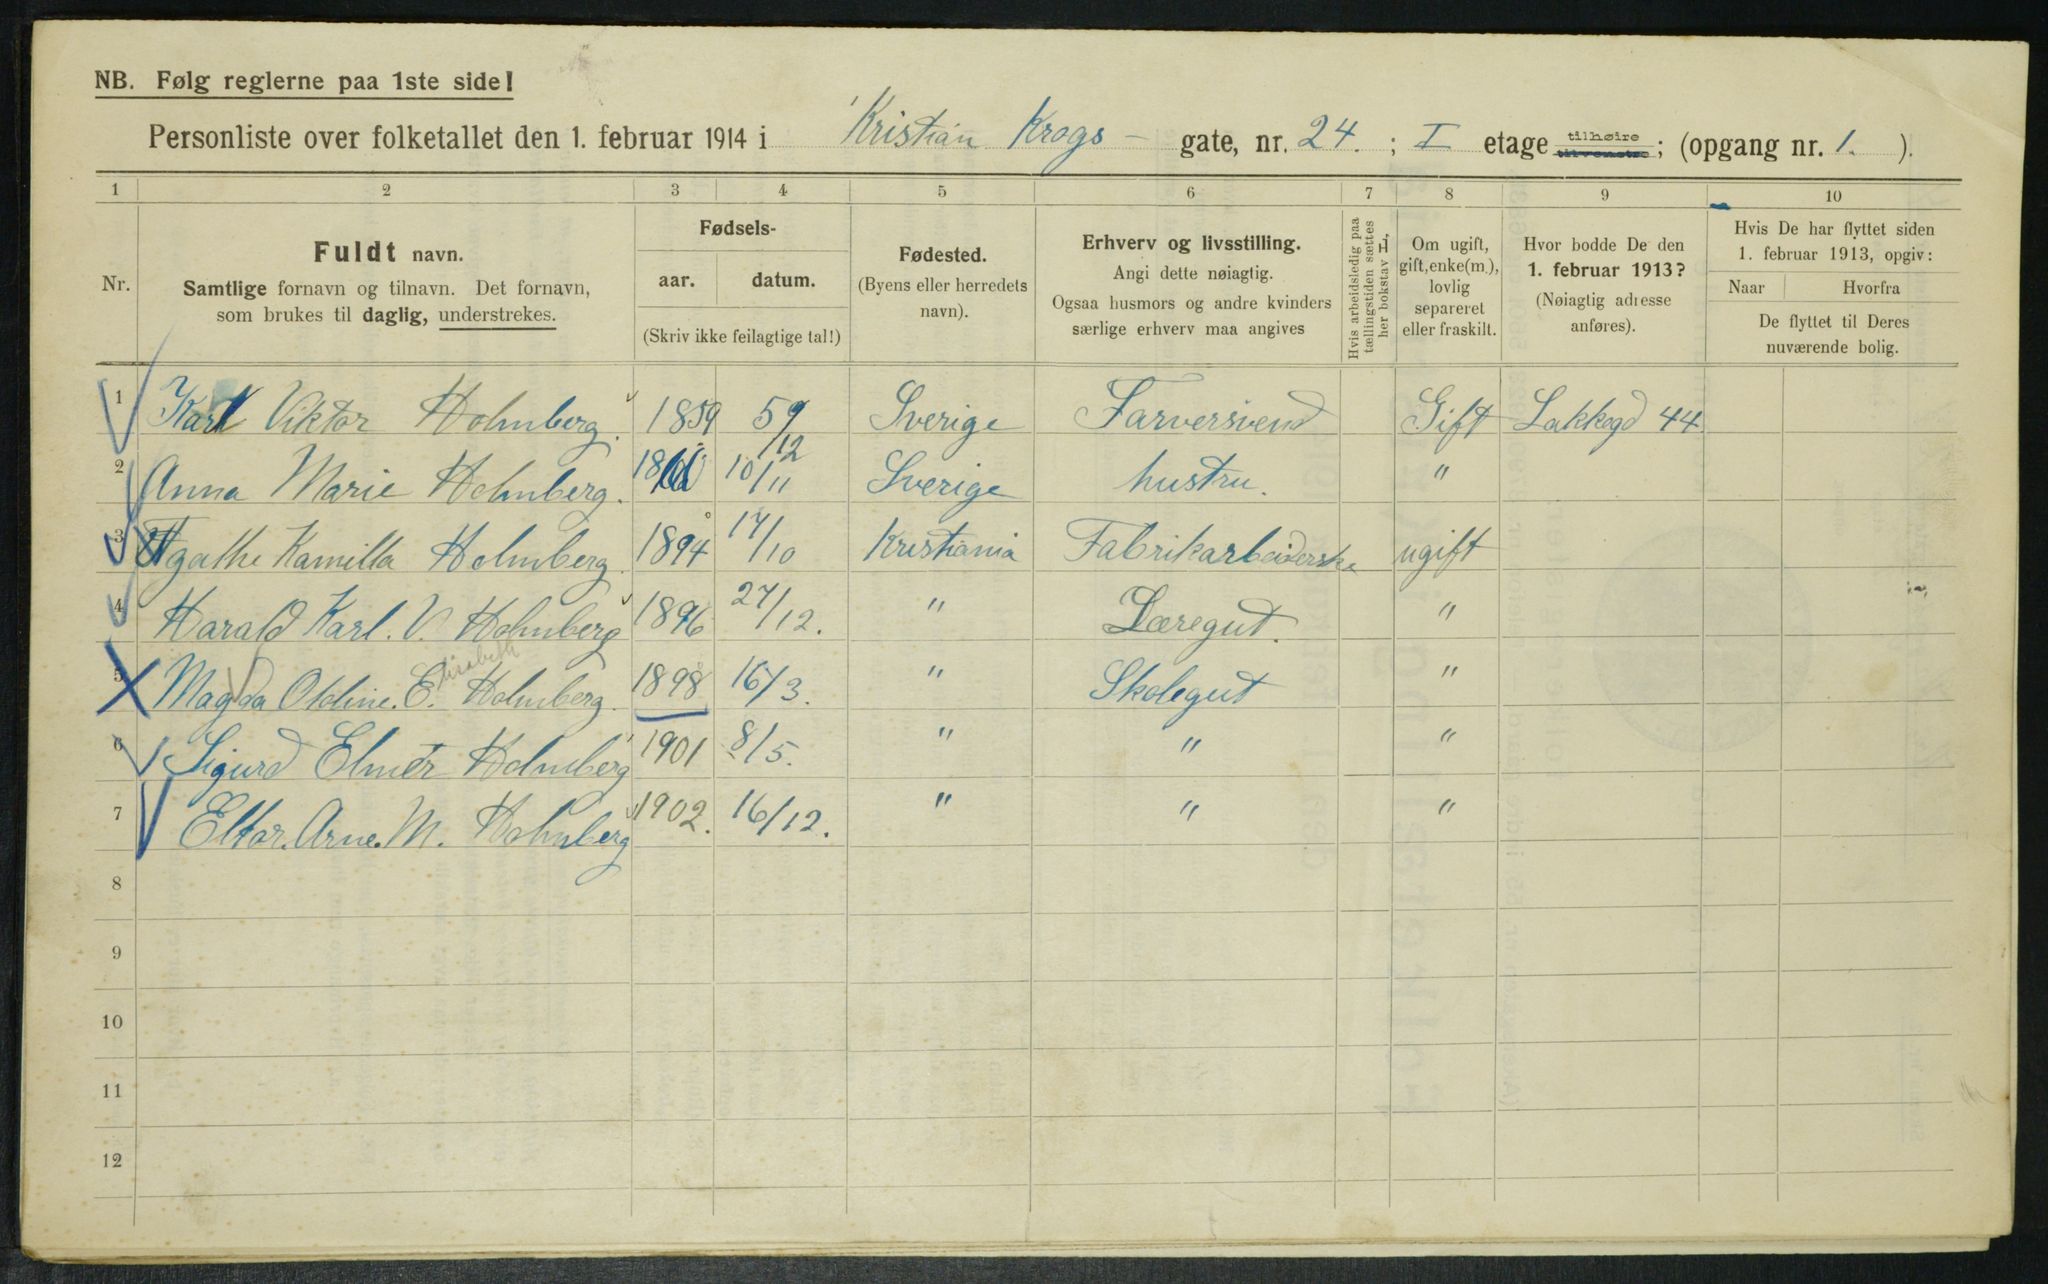 NB. Følg reglerne paa 1ste side!
Personliste over folketallet den 1. februar 1914 i Kristian Krogs - gate, nr. 24. ; I etage tilhøire tilvenstre ; (opgang nr. 1. ).
1 2 3 4 5 6 7 8 9 10
Nr.
Fuldt navn.
Samtlige fornavn og tilnavn. Det fornavn,
som brukes til daglig, understrekes.
Fødsels-
aar. datum.
(Skriv ikke feilagtige tal!)
Fødested.
(Byens eller herredets
navn).
Erhverv og livsstilling.
Angi dette nøiagtig.
Ogsaa husmors og andre kvinders
særlige erhverv maa angives
Hvis arbeidsledig paa
tællingstiden sættes
her bokstav H,
Om ugift,
gift, enke(m.),
lovlig
separeret
eller fraskilt.
Hvor bodde De den
1. februar 1913?
(Nøiagtig adresse
anføres).
Hvis De har flyttet siden
1. februar 1913, opgiv:
Naar Hvorfra
De flyttet til Deres
nuværende bolig.
1 Karl Viktor Holmberg. 1859 5/12 Sverige Farversvend Gift Lakkegd 44.
2 Anna Marie Holmberg. 10/11 Sverige hustru. "
3 Agathe Kamilla Holmberg. 1894 17/10 Kristiania Fabrikarbeiderske ugift
4 Harald Karl. V. Holmberg 1896 27/12. " Læregut. "
5 Magda Oldine. E. lisabeth Holmberg. 1898 16/3. " Skolegut "
6 Sigurd Elmer Holmberg 1901 8/5. " " "
7 Eltor. Arne. M. Holmberg 1902. 16/12. " " "
8
9
10
11
12